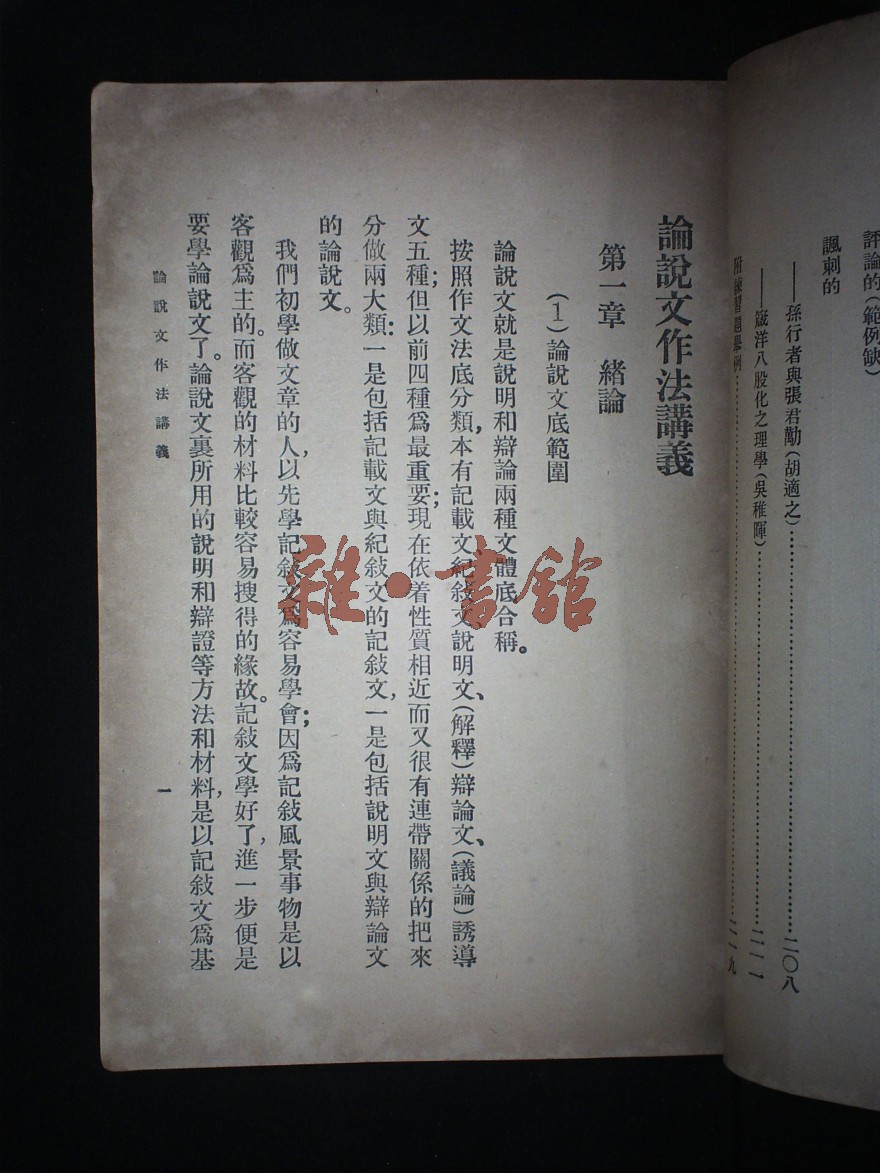 評論的（範例缺）
諷刺的
——孫行者與張君勱（胡適之）……二〇八
——箴洋八股化之理學（吳稚暉）……二一一
附練習題舉例……二一九
論說文作法講義
第一章　緒論
（1）論說文底範圍
論說文就是說明和辯論兩種文體底合稱。
按照作文法底分類，本有記載文、紀敍文、說明文、（解釋）辯論文、（議論）誘導
文五種；但以前四種爲最重要；現在依着性質相近而又很有連帶關係的把來
分做兩大類：一是包括記載文與紀敍文的記敍文，一是包括說明文與辯論文
的論說文。
我們初學做文章的人，以先學記敍文爲容易學會；因爲記敍風景事物是以
客觀爲主的。而客觀的材料比較容易搜得的緣故。記敍文學好了，進一步便是
要學論說文了。論說文裏所用的說明和辯證等方法和材料，是以記敍文爲基
論說文作法講義
一
雜·書館